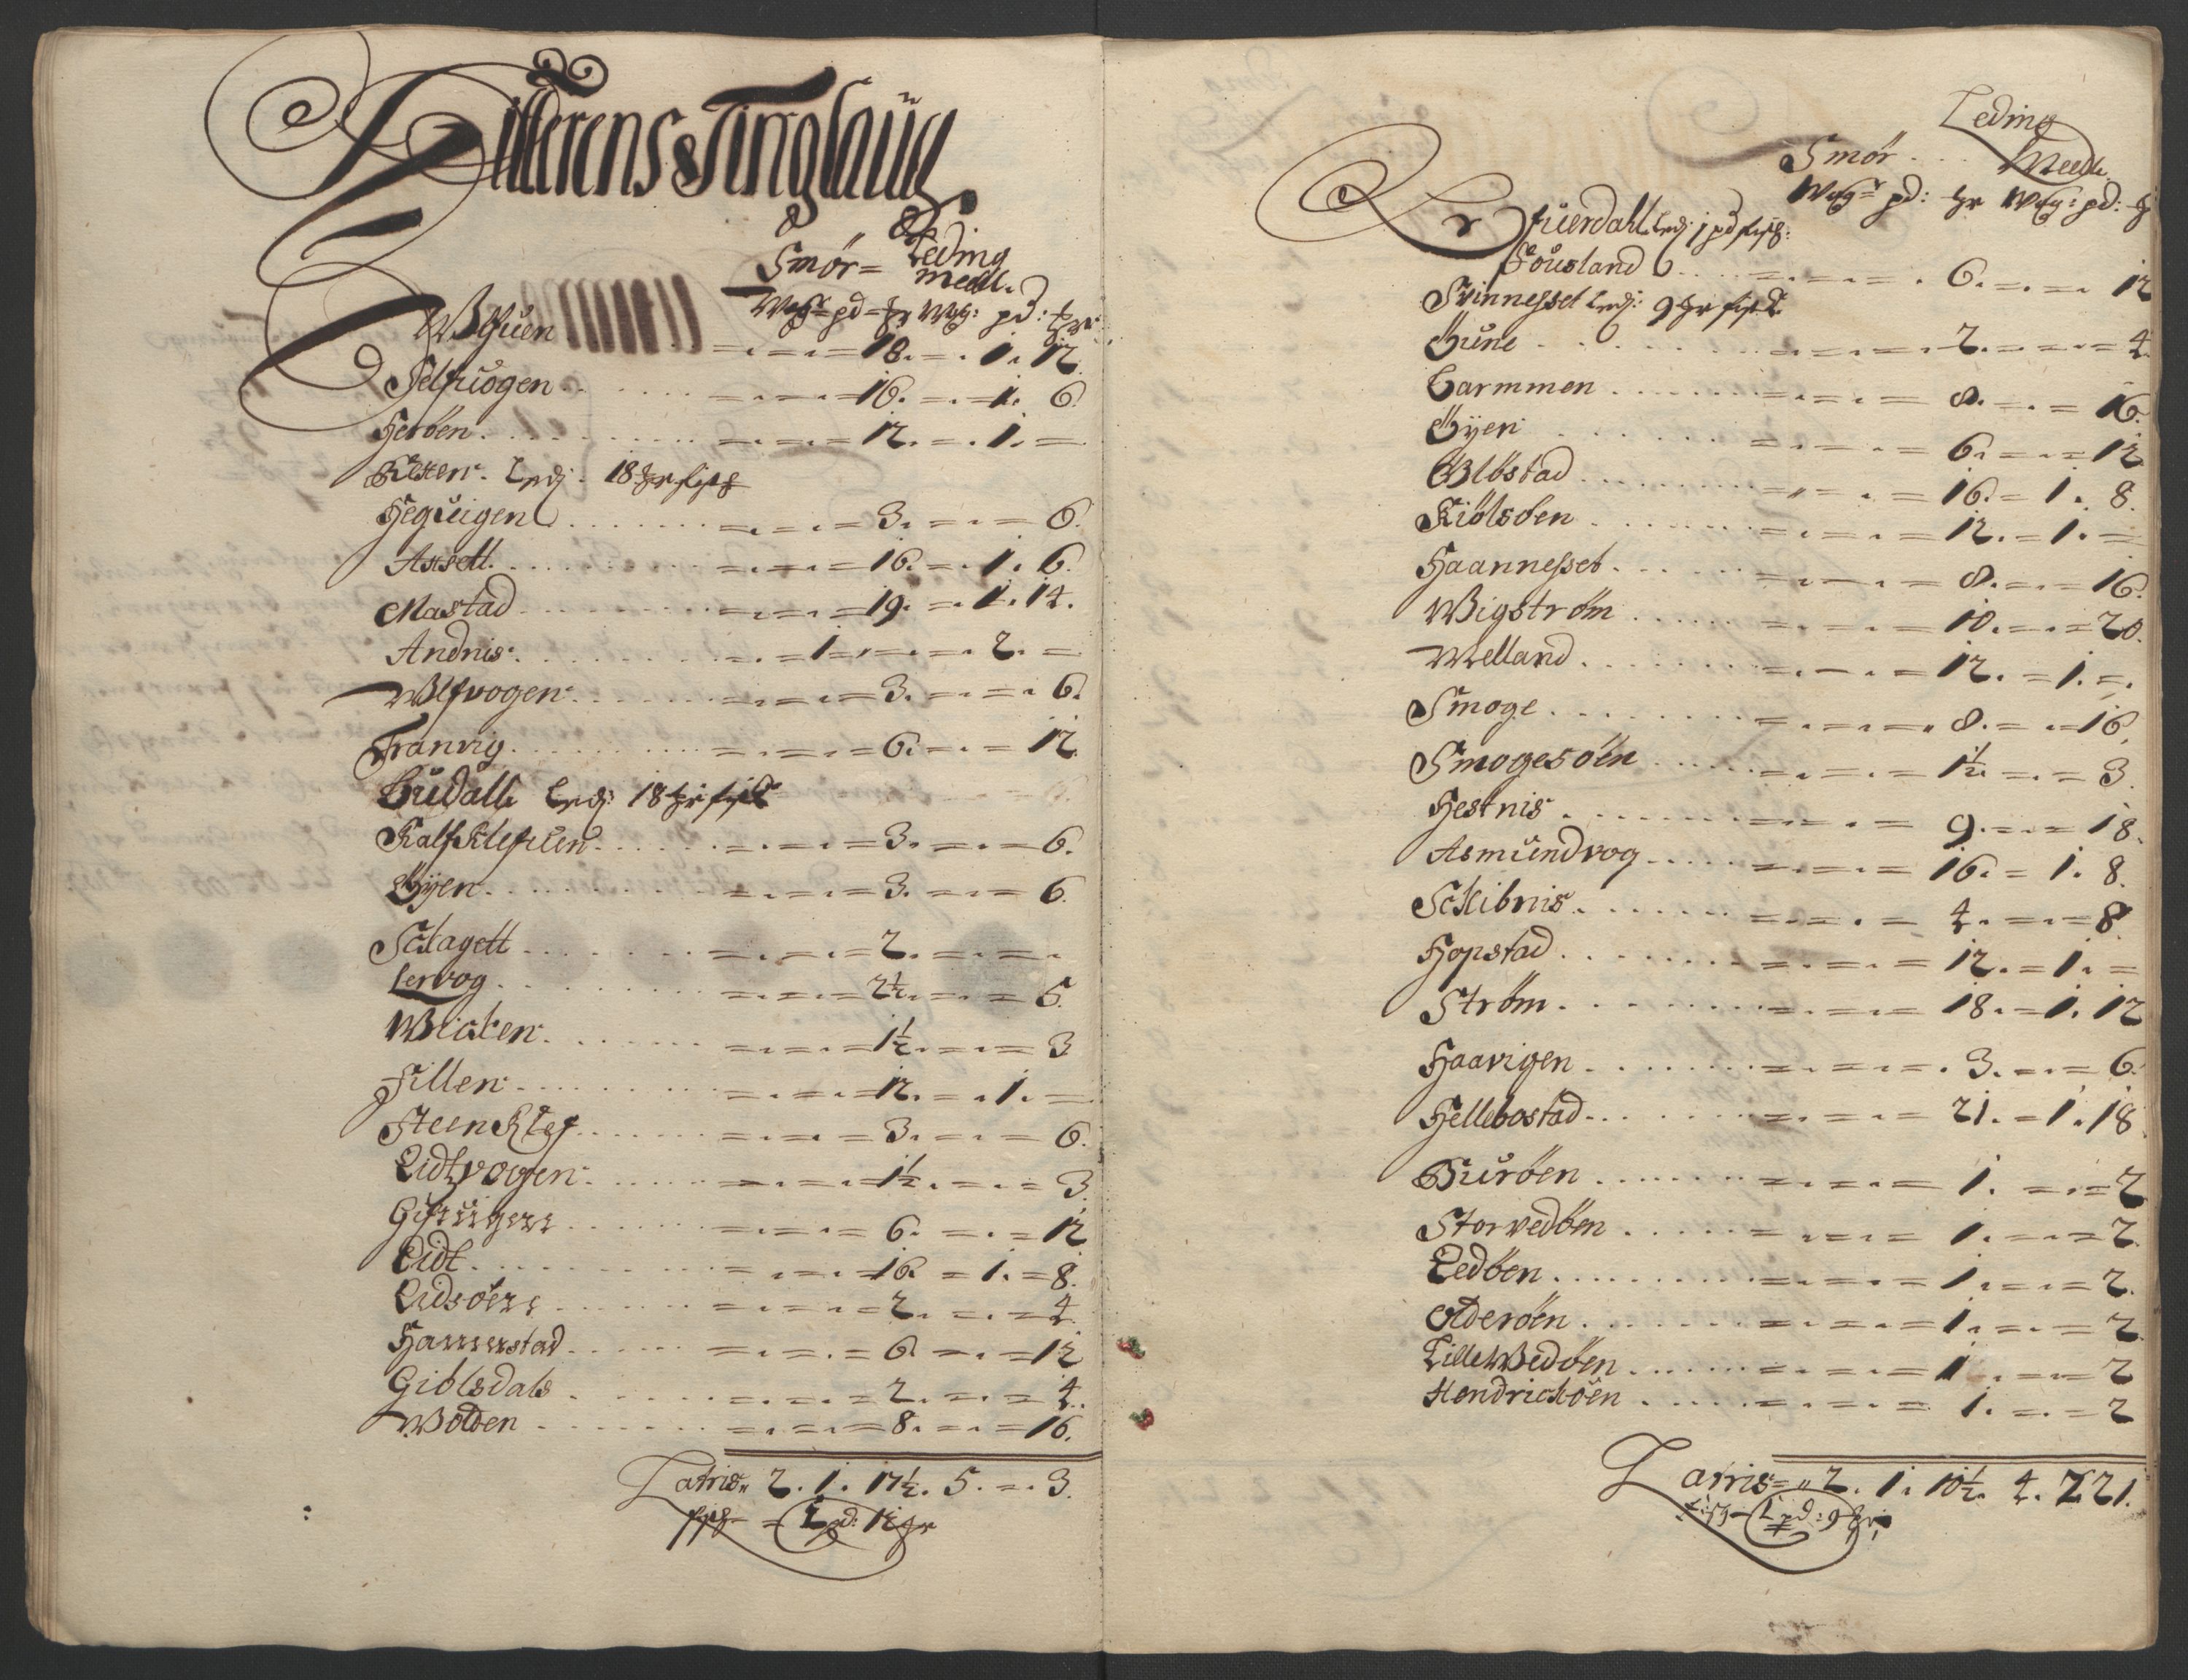 Hitterens Tinglaug
Smør = Leding
Meell.
Wog: pd = hr Wog: pd: hr
Ulfuen = 18. = 1. 12
Selfuogen = 16. = 1. 6.
Herøen = 12. = 1. =
Kesten. Ledj: 18 hr fisch
Heguigen = 3. = 6.
Ansett = 16. = 1. 6.
Mastad = 19. = 1. 14.
Andnis = 1. = 2. =
Ulfvogen = 3. = 6.
Tranvig = 6. = 12.
Gudall Ledj: 18 hr fisch
Kalfklefuen = 3. = 6.
Øyen = 3. = 6.
Schagett = 2. =
Lervog = 2½. = 5.
Wichen = 1½. = 3
Fillen = 12. = 1. =
Steenklef = 3. = 6.
Eidtvogen = 1½. = 3.
Giefuigen = 6. = 12
Eidt = 16. = 1. = 8.
Eidsøen = 2. = 4.
Hammerstad = 6. = 12
Giølsdals = 2. = 4.
Wolden = 8. = 16.
Latris 2. 1. 17½. 5. = 3.
fisch = 1 pd: 12 hr
Leding
Smør Meell.
Wog: pd: hr Wog: pd: hr
Qverfuerdahl Ledj: 1 pd fisch:
Sousland = 6. = 12
Svinnesset Ledj: 9 hr fisch
Gune = 2. = 4.
Barmmen = 8. = 16.
Øyen = 6. = 12
Ulbstad = 16. = 1. 8.
Kiølsøen = 12. = 1. =
Haannesset = 8. = 16.
Wigstrøm = 10. = 20.
Welland = 12. = 1. =
Smoge = 8. = 16.
Smogesøen = 1½. = 3.
Hestnis = 9. = 18.
Asmundvog = 16. = 1. 8.
Schibnis = 4. = 8.
Hopstad = 12. = 1. =
Strøm = 18. = 1. 12
Haavigen = 3. = 6.
Hellebostad = 21. = 1. 18
Burøen = 1. = 2
Storvedøen = 1. = 2.
Ledøen = 1. = 2.
Olderøen = 1. = 2.
Lille Wedøen = 1 = 2
Hendrichøen = 1. = 2
Latris = 2. 1. 10½. 4. 2 21.
Fisch 1 pd: 9 hr